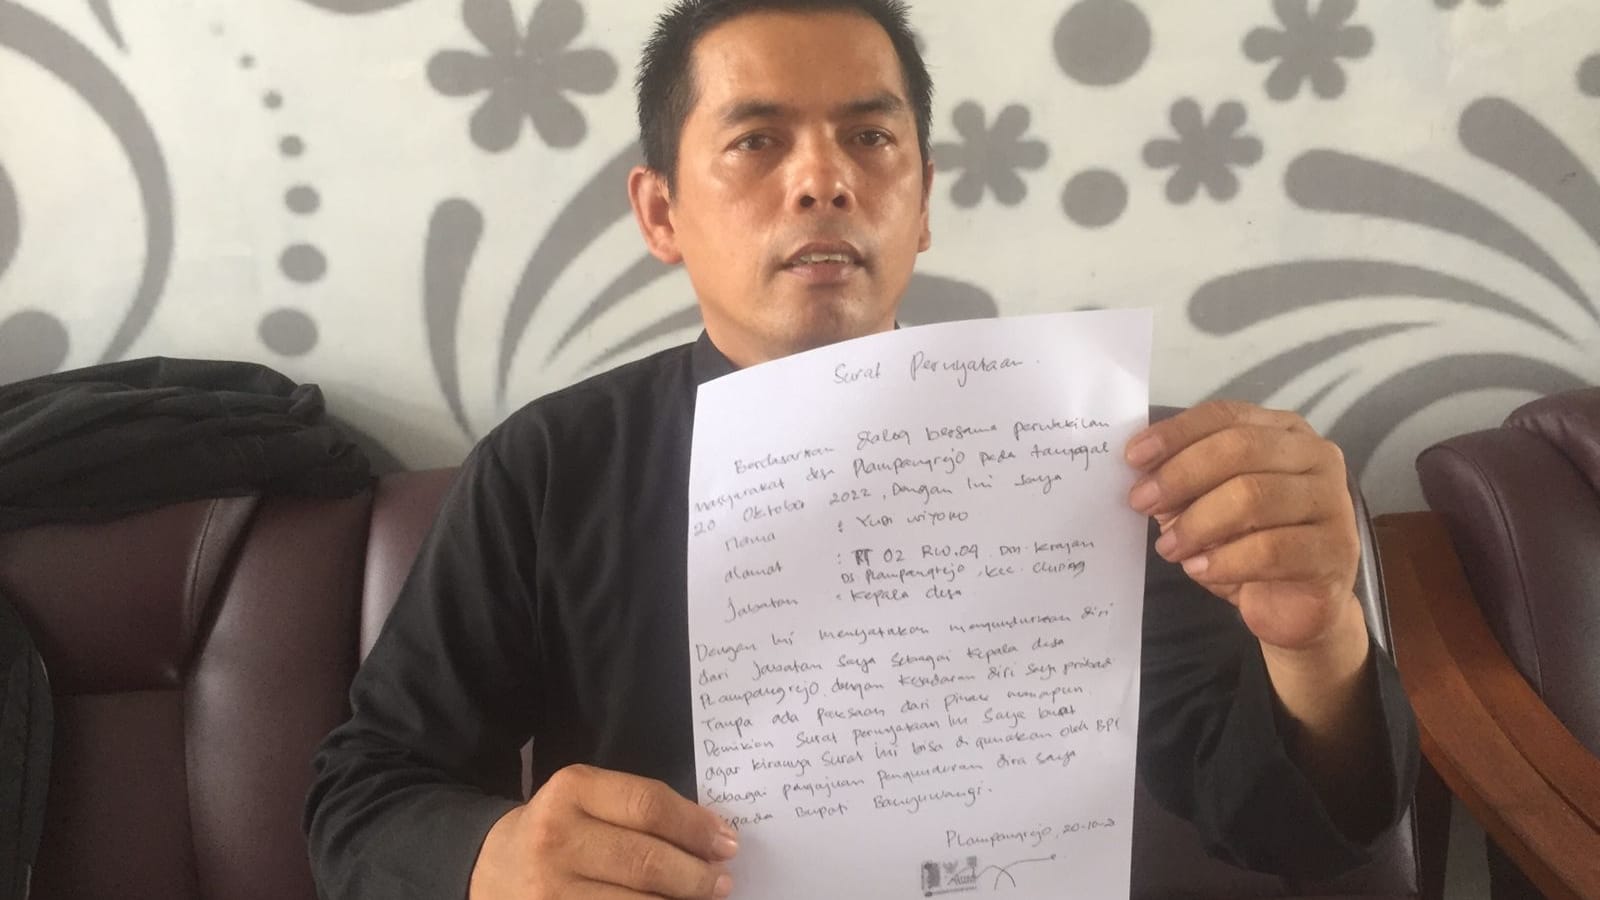 Surat Pernyataan.
Berdasarkan dialog bersama perwakilan
masyarakat desa Plampangrejo pada tanggal
20 Oktober 2022, Dengan Ini Saya
Nama : Yudi Wiyono
Alamat : RT 02 RW.04 Dsn. Krajan
Ds. Plampangrejo, kec. Cluring
Jabatan : Kepala desa
Dengan Ini menyatakan mengundurkan diri
dari Jabatan Saya Sebagai Kepala desa
Plampangrejo, dengan Kesadaran diri saya pribadi
Tanpa ada paksaan dari pihak manapun.
Demikian Surat pernyataan Ini Saya buat
agar kiranya Surat Ini bisa di gunakan oleh BPD
Sebagai pengajuan pengunduran diri saya
kepada Bupati Banyuwangi.
Plampangrejo, 20-10-2